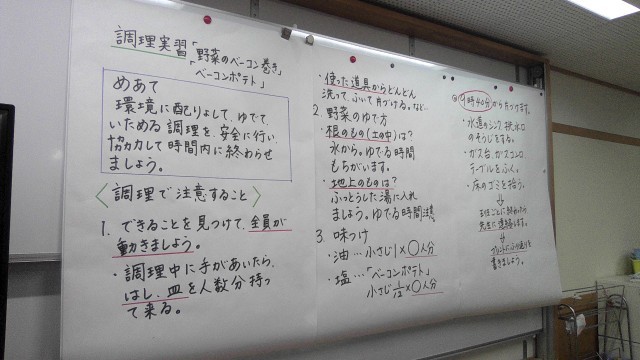 調理実習「野菜のベーコン巻き」
「ベーコンポテト」
めあて
環境に配りょして、ゆでて、
いためる調理を、安全に行い、
協力して時間内に終わらせ
ましょう。
〈調理で注意すること〉
1. できることを見つけて、全員が
動きましょう。
・調理中に手があいたら、
はし、皿を人数分持っ
て来る。
・使った道具からどんどん
洗って、ふいて片づける。など…
2. 野菜のゆで方
・根のもの(土の中)は?
水から。ゆでる時間
もちがいます。
・地上のものは?
ふっとうした湯に入れ
ましょう。ゆでる時間注意
3. 味つけ
・油…小さじ1×〇人分
・塩…「ベーコンポテト」
小さじ1/12×〇人分
9時40分から片づけます。
・水道のシンク、排水口
のそうじをする。
・ガス台、ガスコンロ、
テーブルをふく。
・床のゴミを拾う。
↓
先生に連絡します。
↓
書きましょう。